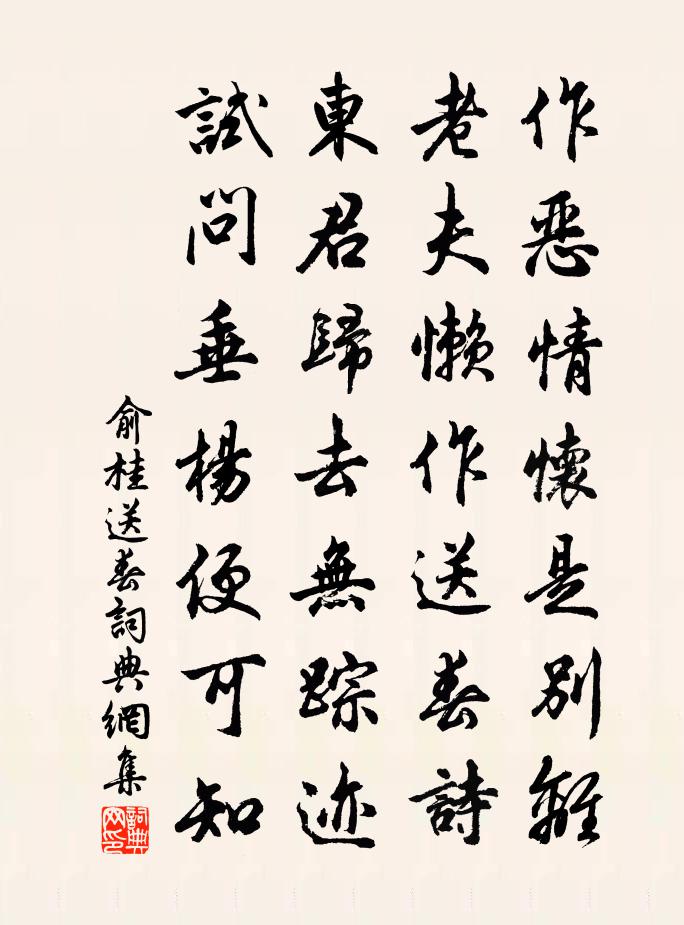 作惡情懷是別離
老夫懶作送春詩
東君歸去無踪迹
試問垂楊便可知
俞桂送春詞典網集
詞典網印